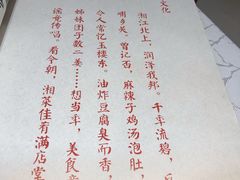 文化
湘江北上，润泽我邦。千年流碧，
哺乡关。曾记否，麻辣子鸡汤泡肚，
令人常忆玉楼东。油炸豆腐臭而香，
姊妹团子数二姜……想当年，美食
谣竞传唱。看今朝，湘菜佳肴满店堂